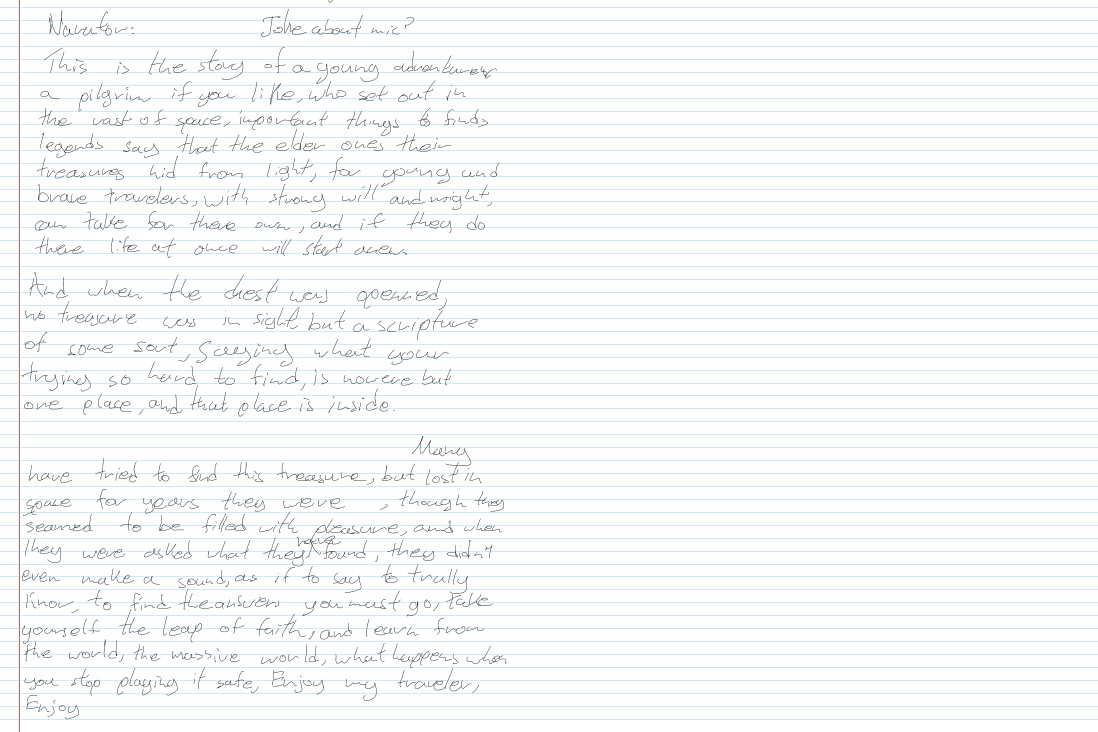 Narrator: Joke about mic?
This is the story of a young adventurer
a pilgrim if you like, who set out in
the vast of space, important things to find,
legends say that the elder ones their
treasures hid from light, for young and
brave travelers, with strong will and might,
can take for there own, and if they do
there life at once will start anew.
And when the chest was openned,
no treasure was in sight but a scripture
of some sort, saeying what your
trying so hard to find, is nowere but
one place, and that place is inside.
Many
have tried to find this treasure, but lost in
space for years they were , though they
seamed to be filled with pleasure, and when
they were asked what they have found, they didn't
even make a sound, as if to say to trully
know, to find the answers you must go, take
yourself the leap of faith, and learn from
the world, the massive world, what happens when
you stop playing it safe, Enjoy my traveler,
Enjoy